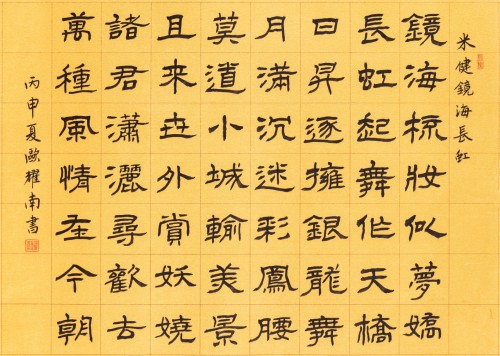 米健鏡海長虹
鏡海梳妝似夢嬌
長虹起舞作天橋
日昇逐擁銀龍舞
月滿沉迷彩鳳腰
莫道小城輸美景
且來世外賞妖嬈
諸君瀟灑尋歡去
萬種風情在今朝
丙申夏歐耀南書